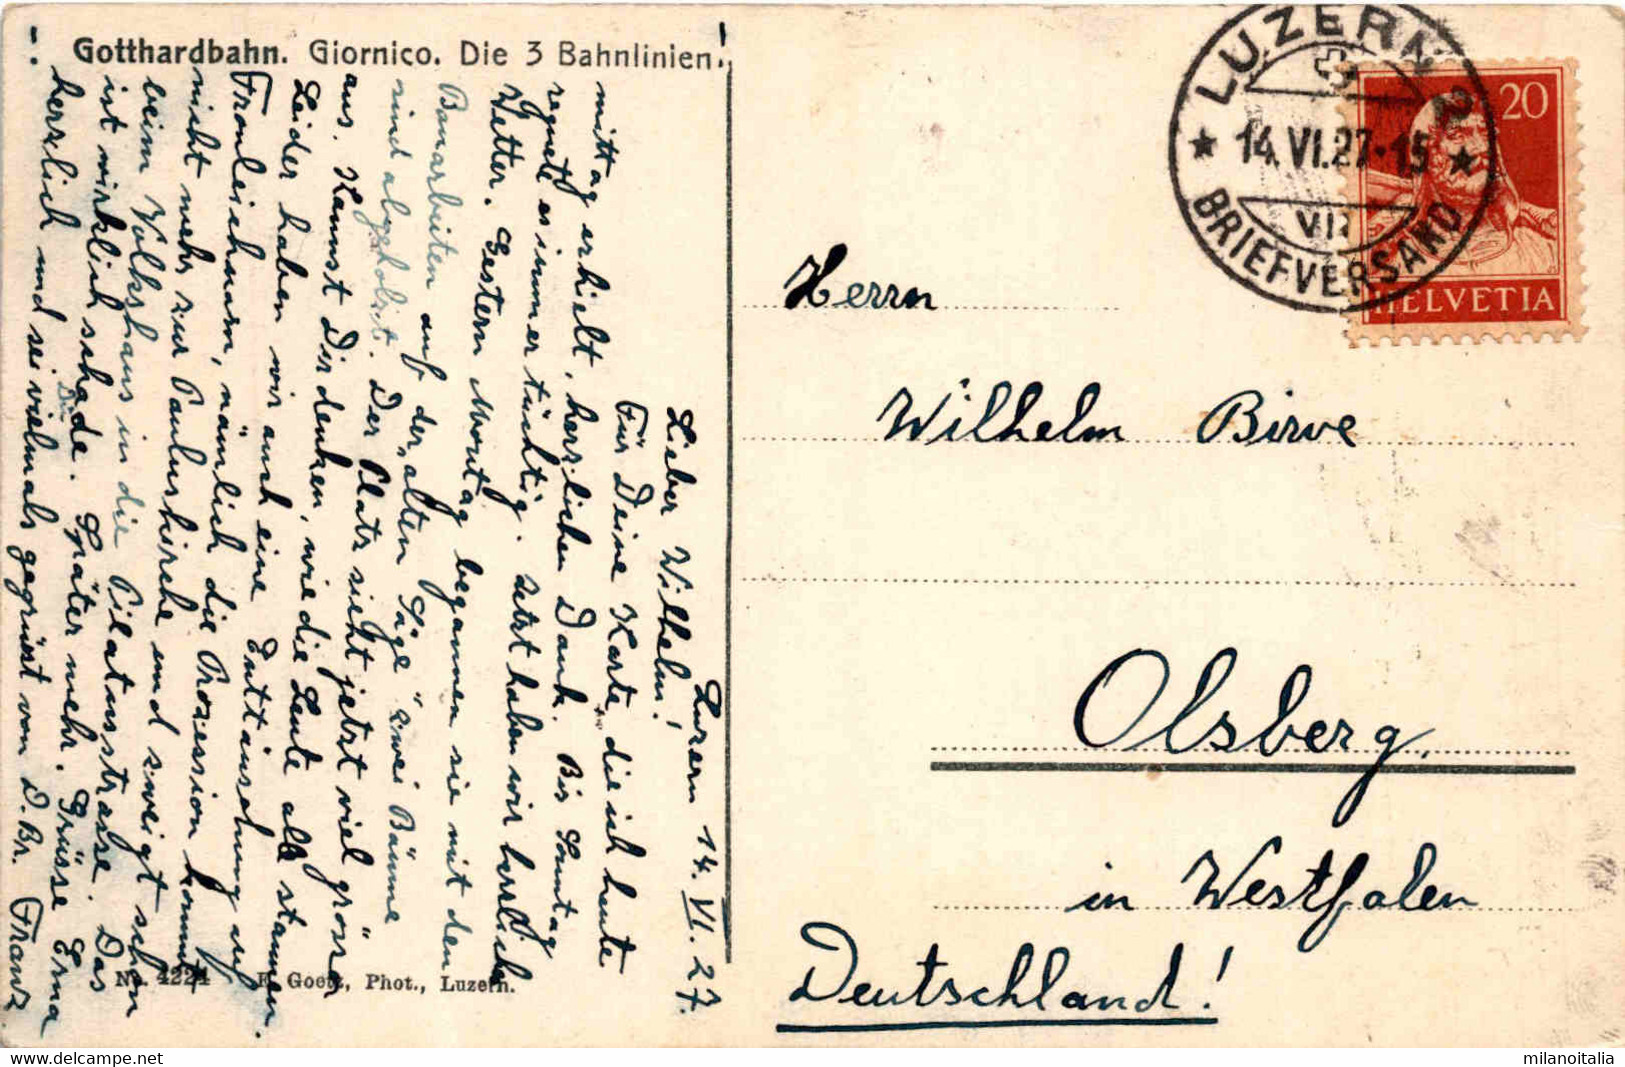 Gotthardbahn. Giornico. Die 3 Bahnlinien.
Luzern 14. VI. 27.
Lieber Wilhelm!
Für Deine Karte, die ich heute
mittag erhielt, herzlichen Dank. Bis Sonntag
regnete es immer tüchtig. Jetzt haben wir herrlich
Wetter. Gestern Montag begannen sie mit den
Bauarbeiten auf der „alten Säge" zwei Bäume
sind abgeholzt. Der Platz sieht jetzt viel grösser
aus. Kannst Dir denken, wie die Leute alle staunen.
Leider haben wir auch eine Enttäuschung auf
Fronleichnam, nämlich die Prozession kommt
nicht mehr zur Pauluskirche und zweigt schon
beim Volkshaus in die Pilatusstrasse. Das
ist wirklich schade. Später mehr. Grüsse Erna
herzlich und sei Du vielmals gegrüsst von D. Br. Franz
No. 4224 Goetz, Phot., Luzern.
LUZERN 2
14.VI.27-15
VII
BRIEFVERSAND
20
HELVETIA
Herrn
Wilhelm Birve
Olsberg.
in Westfalen
Deutschland!
milanoitalia